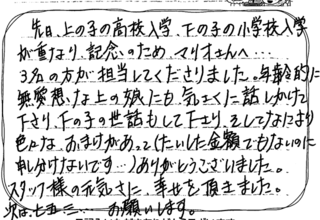 先日、上の子の高校入学、下の子の小学校入学
が重なり、記念のため、マリオさんへ…
3名の方が担当してくださりました。年齢的に
無愛想な上の娘にも、気さくに話しかけて
下さり、下の子の世話もして下さり、そしてなにより
色々な、おまけがあって(たいした金額でもないのに
申し分けないです…)ありがとうございました。
スタッフ様の元気さに、幸せを頂きました。
次は、七五三… お願いします。